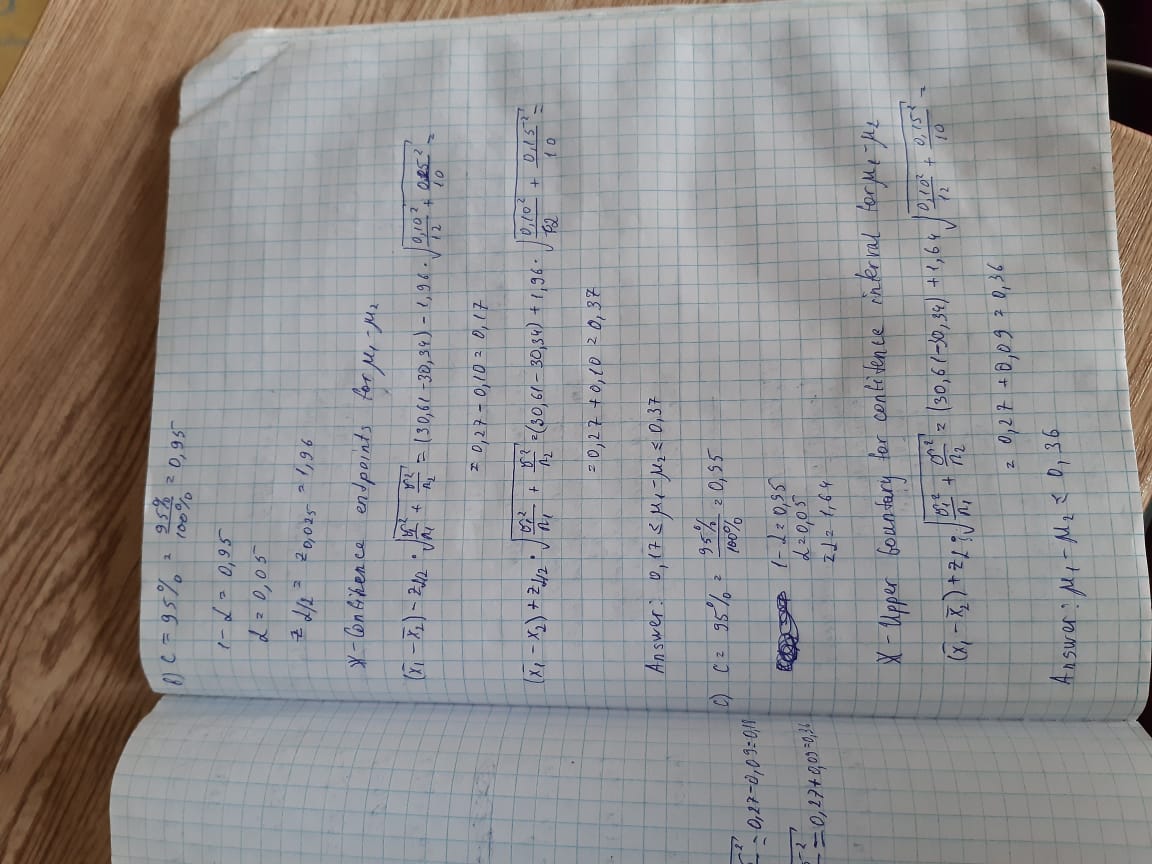 b) C = 95% = 95%/100% = 0,95
1-α = 0,95
α = 0,05
z α/2 = z0,025 = 1,96
X - Confidence endpoints for μ1-μ2
(x̄1 - x̄2) - zα/2 · √(σ1²/n1 + σ2²/n2) = (30,61-30,34) - 1,96 · √(0,10²/12 + 0,15²/10) =
= 0,27 - 0,10 = 0,17
(x̄1 - x̄2) + zα/2 · √(σ1²/n1 + σ2²/n2) = (30,61-30,34) + 1,96 · √(0,10²/12 + 0,15²/10) =
= 0,27 + 0,10 = 0,37
Answer: 0,17 ≤ μ1-μ2 ≤ 0,37
c) C = 95% = 95%/100% = 0,95
1-α = 0,95
α = 0,05
zα = 1,64
X - Upper boundary for confidence interval for μ1-μ2
(x̄1 - x̄2) + zα · √(σ1²/n1 + σ2²/n2) = (30,61-30,34) + 1,64 √(0,10²/12 + 0,15²/10) =
= 0,27 + 0,09 = 0,36
Answer: μ1 - μ2 ≤ 0,36
= 0,27-0,09=0,18
= 0,27+0,09=0,36